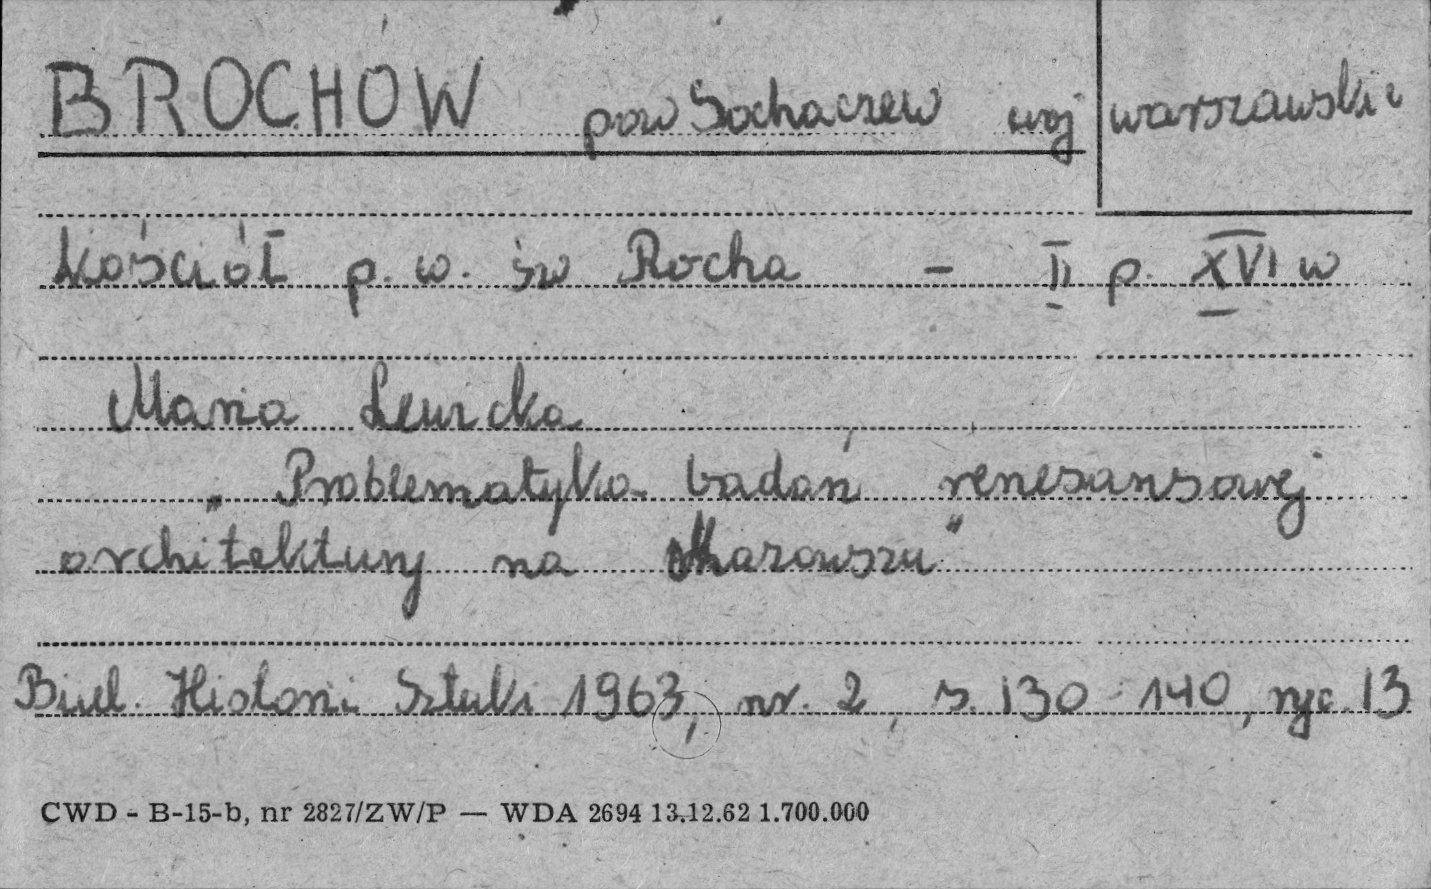 BROCHÓW pow Sochaczew woj warszawskie
Kościół p.w. św Rocha - II p. XVI w
Maria Lewicka
„Problematyka badań renesansowej
architektury na Mazowszu"
Biul. Historii Sztuki 1963, nr. 2, s. 130-140, ryc. 13
CWD - B-15-b, nr 2827/ZW/P — WDA 2694 13.12.62 1.700.000